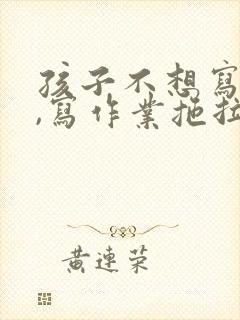 孩子不想寫
,寫作業拖拉
黃連榮